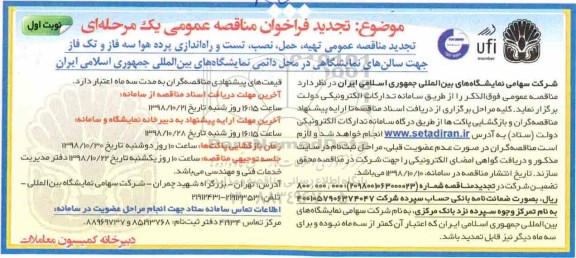 نوبت اول
موضوع: تجدید فراخوان مناقصه عمومی یک مرحله‌ای
تجدید مناقصه عمومی تهیه، حمل، نصب، تست و راه‌اندازی پرده هوا سه فاز و تک فاز
جهت سالن‌های نمایشگاهی در محل دائمی نمایشگاه‌های بین‌المللی جمهوری اسلامی ایران
ufi
Member
شرکت سهامی نمایشگاه‌های بین‌المللی جمهوری اسلامی ایران در نظر دارد
مناقصه عمومی فوق‌الذکر را از طریق سامانه تدارکات الکترونیکی دولت
برگزار نماید. کلیه مراحل برگزاری از دریافت اسناد مناقصه تا ارایه پیشنهاد
مناقصه‌گران و بازگشایی پاکت‌ها از طریق درگاه سامانه تدارکات الکترونیکی
دولت (ستاد) به آدرس www.setadiran.ir انجام خواهد شد و لازم
است مناقصه‌گران در صورت عدم عضویت قبلی، مراحل ثبت‌نام در سایت
مذکور و دریافت گواهی امضای الکترونیکی را جهت شرکت در مناقصه محقق
سازند. تاریخ انتشار مناقصه در سامانه، ۱۳۹۸/۱۰/۱۰ می‌باشد.
تضمین شرکت در تجدید مناقصه شماره (۲۰۹۸۰۰۱۰۶۳۰۰۰۰۲۳) ۱/۰۰۰/۸۰۰/۰۰۰
ریال، بصورت ضمانت نامه بانکی حساب سپرده شرکت ۴۰۰۱۰۵۷۹۰۶۳۷۴۰۴۷
به نام تمرکز وجوه سپرده نزد بانک مرکزی، به نام شرکت سهامی نمایشگاه‌های
بین‌المللی جمهوری اسلامی ایران که اعتبار آن کمتر از سه ماه نبوده و برای
سه ماه دیگر نیز قابل تمدید باشد.
قیمت‌های پیشنهادی مناقصه‌گران به مدت سه ماه اعتبار دارد.
آخرین مهلت دریافت اسناد مناقصه از سامانه:
ساعت ۱۶:۱۵ روز شنبه تاریخ ۱۳۹۸/۱۰/۲۱
آخرین مهلت ارایه پیشنهاد به دبیرخانه نمایشگاه و سامانه:
ساعت ۱۶:۱۵ روز شنبه تاریخ ۱۳۹۸/۱۰/۲۸
زمان بازگشایی پاکت‌ها: ساعت ۱۰ روز دوشنبه تاریخ ۱۳۹۸/۱۰/۳۰
جلسه توجیهی مناقصه: ساعت ۱۰ روز یکشنبه تاریخ ۱۳۹۸/۱۰/۲۲ دفتر مدیریت
خدمات فنی و مهندسی می‌باشد.
آدرس: تهران - بزرگراه شهید چمران - شرکت سهامی نمایشگاه بین‌المللی -
اطلاعات تماس سامانه ستاد جهت انجام مراحل عضویت در سامانه:
مرکز تماس ۴۱۹۳۴ دفتر ثبت‌نام: ۸۵۱۹۳۷۶۸ و ۸۸۹۶۹۷۳۷
دبیرخانه کمیسیون معاملات